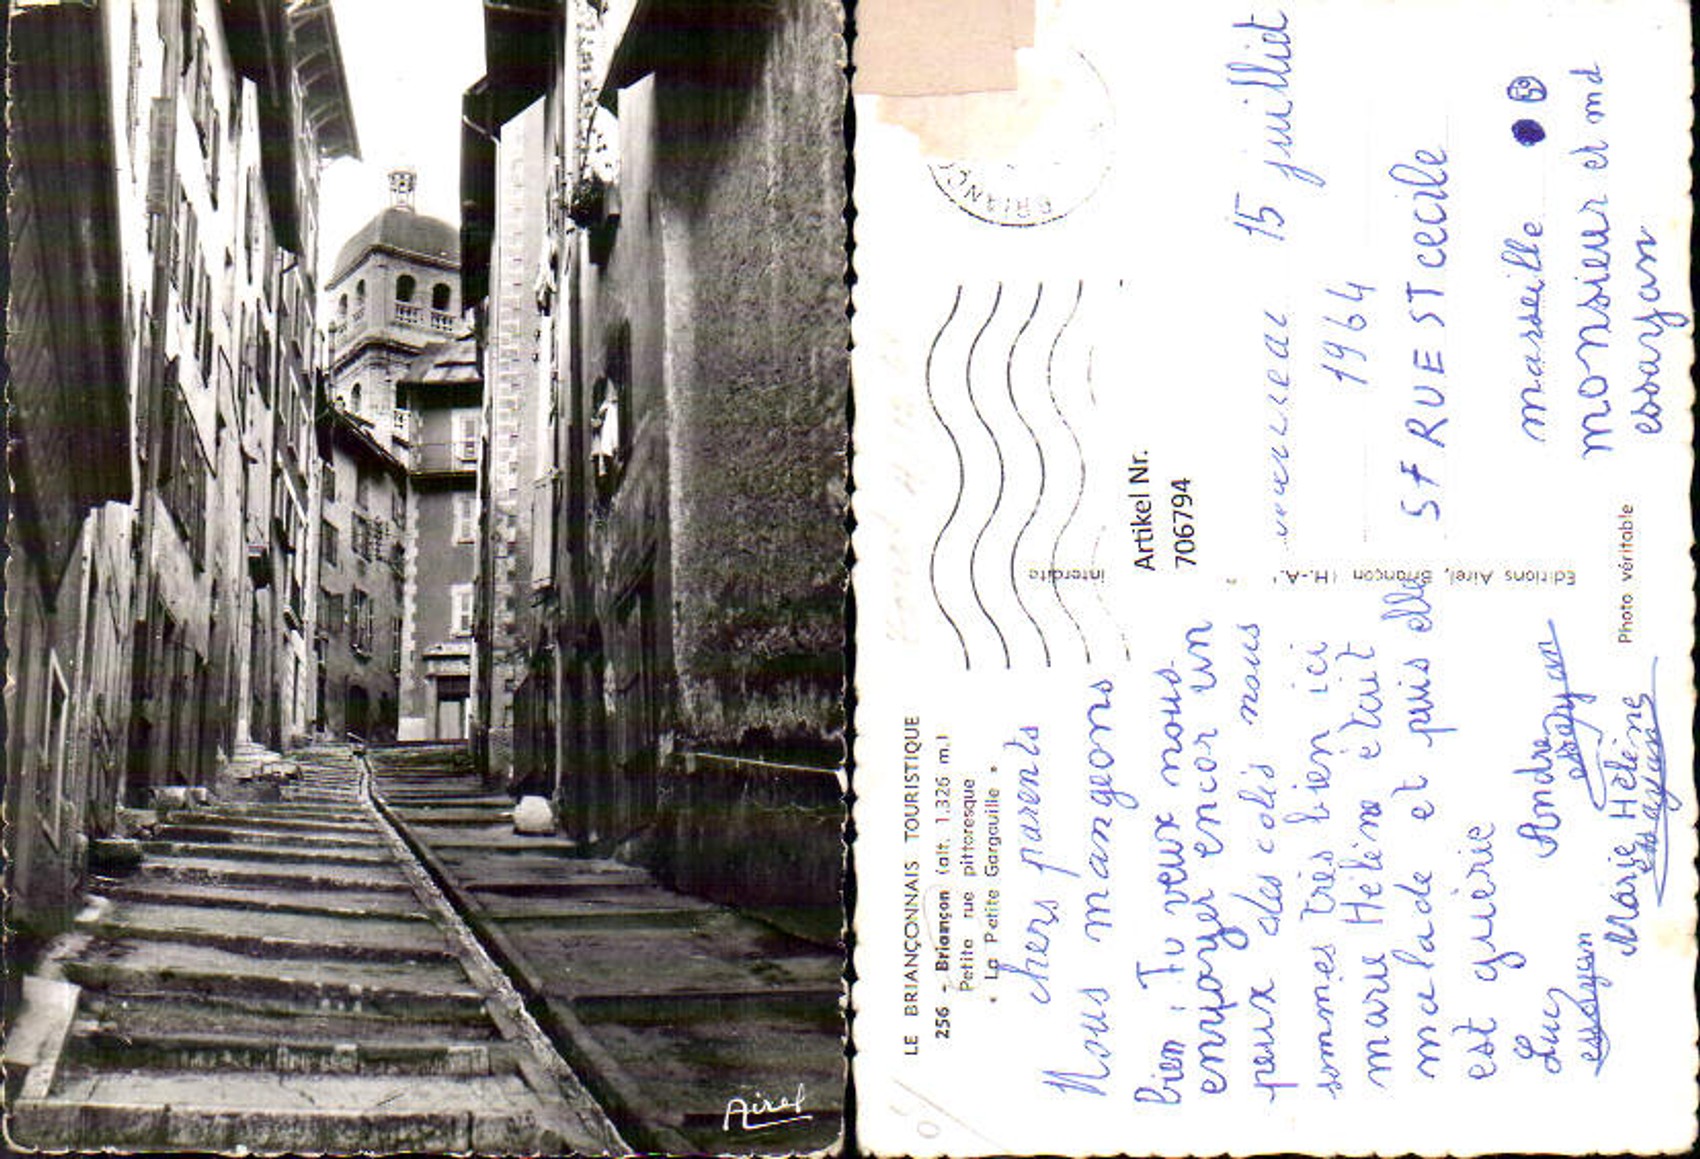 Airel
LE BRIANÇONNAIS TOURISTIQUE
256 - Briançon (alt. 1.326 m.)
Petite rue pittoresque
« La Petite Gargouille »
chers parents
Nous mangeons
bien : Tu veux nous
envoyer encor un
peux des colis nous
sommes très bien ici
marie Hélène était
malade et puis elle
est guérie
Luc
essayan
Andre
essayan
Marie Hélène
essayane
interdite
Editions Airel, Briançon (H.-A.)
Photo véritable
Artikel Nr.
706794
BRIANÇ
15 juilliet
1964
57 RUE ST cecile
masseille
monsieur et md
essayan